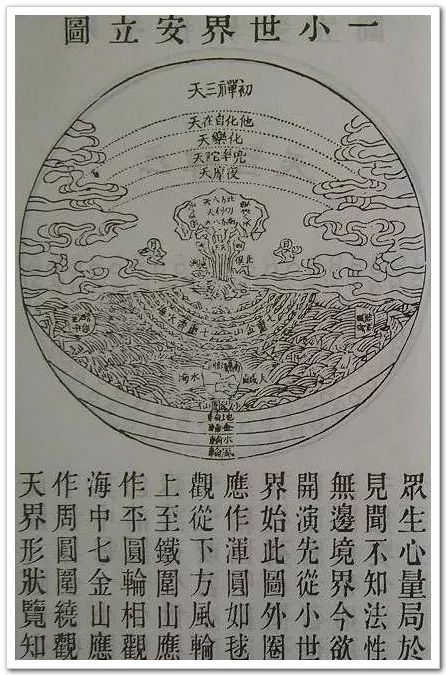 一小世界安立圖
初禪三天
他化自在天
化樂天
兜率陀天
夜摩天
地輪
金輪
水輪
風輪
眾生心量局於
見聞不知法性
無邊境界今欲
開演先從小世
界始此圖外圈
應作渾圓如毬
觀從下方風輪
上至鐵圍山應
作平圓輪相觀
海中七金山應
作周圓圍繞觀
天界形狀覽知